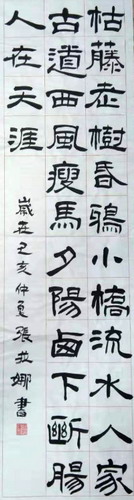 枯藤老樹昏鴉小橋流水人家
古道西風瘦馬夕陽卤下斷腸
人在天涯
歲在己亥仲夏張拉娜書